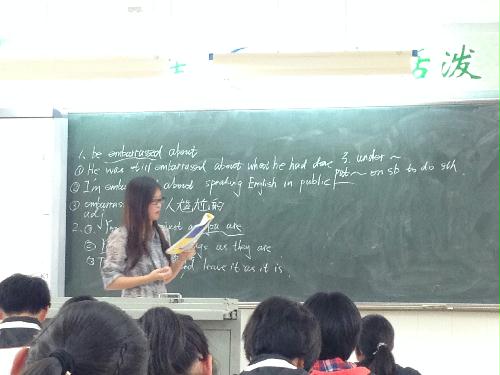 活泼
1. be embarrassed about
① He was still embarrassed about what he had done
② I'm about speaking English in public
③ 人尴尬的
adj
2. ①. just as you are
② as they are
③ leave it as it is.
3. under ~
put ~ on sb to do sth.